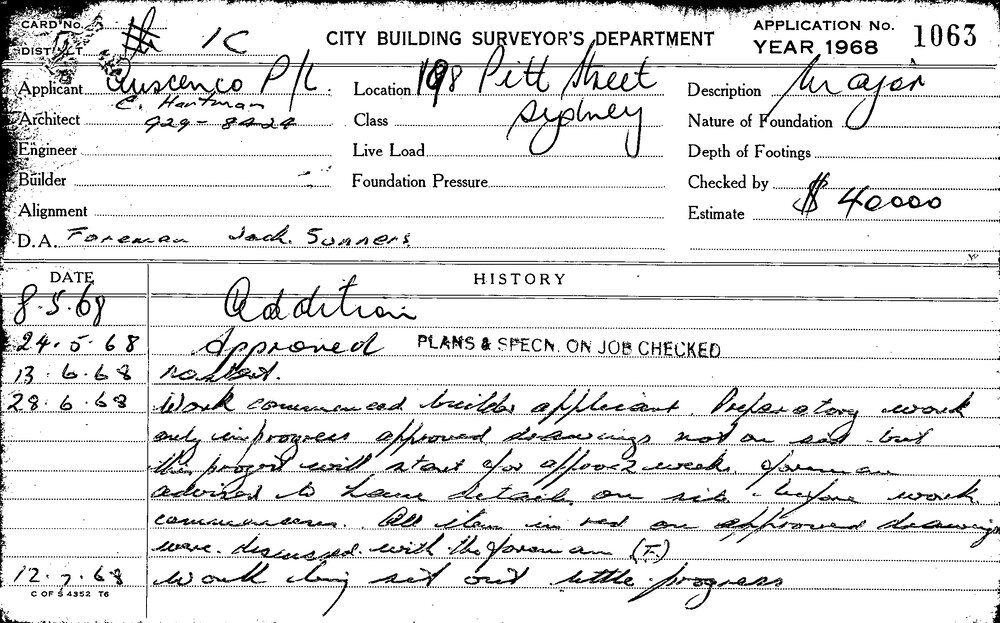 CARD No. 3
DISTRICT 1C
CITY BUILDING SURVEYOR'S DEPARTMENT
APPLICATION No. 1063
YEAR 1968
Applicant P/L.
C. Hartman
Architect 929-8424
Engineer
Builder
Alignment
D.A. Foreman Jack. Sumners
Location 198 Pitt Street
Class Sydney
Live Load
Foundation Pressure
Description Major
Nature of Foundation
Depth of Footings
Checked by
Estimate $ 40000
DATE HISTORY
8.5.68 Addition
24.5.68 Approved PLANS & SPECN. ON JOB CHECKED
13.6.68 no start.
28.6.68 Work commenced builder applicant. Preparatory work
only in progress approved drawings not on site but
this project will start for approx 2 weeks foreman
advised to have details on site before work
commences. All items in red on approved drawings
were discussed with the foreman (T.)
12.7.68 Work being set out little progress
C OF S 4352 T6